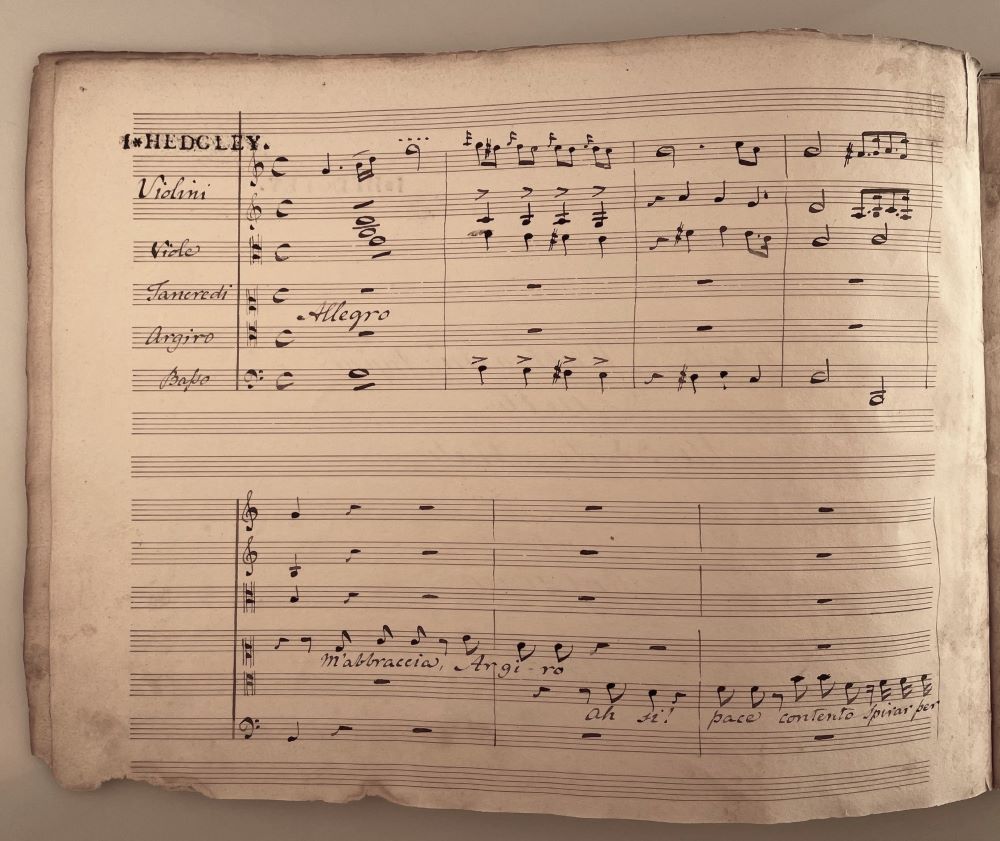 I*HEDGLEY.
Violini
Viole
Tancredi
Allegro
Argiro
Baſso
m'abbraccia, Argi-ro
Ah si! pace contento spirar per